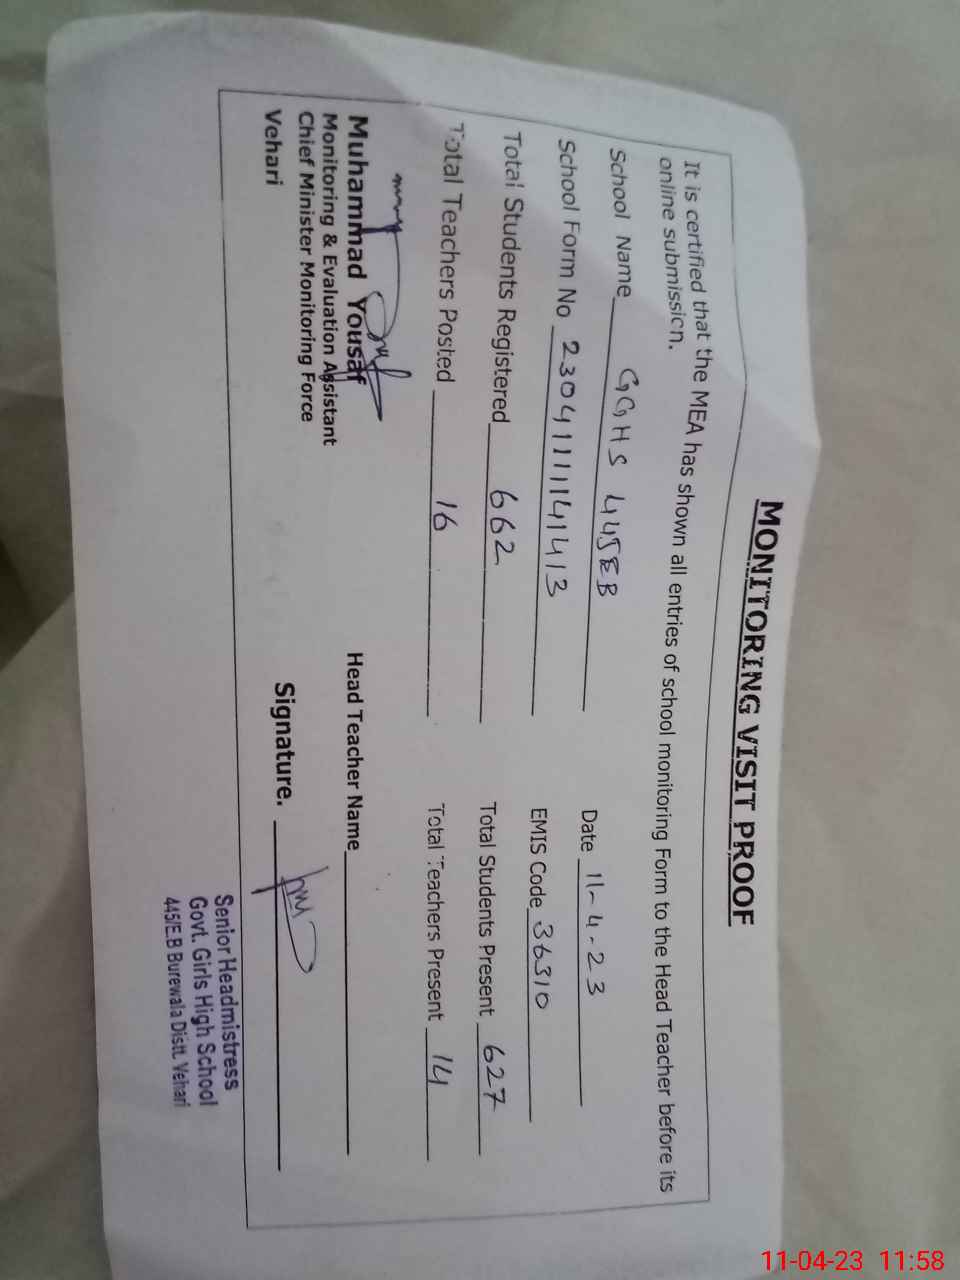 MONITORING VISIT PROOF
It is certified that the MEA has shown all entries of school monitoring Form to the Head Teacher before its
online submission.
School Name GGHS 445EB Date 11-4-23
School Form No 23041111141413 EMIS Code 36310
Total Students Registered 662 Total Students Present 627
Total Teachers Posted 16 Total Teachers Present 14
Muhammad Yousaf Head Teacher Name
Monitoring & Evaluation Assistant
Chief Minister Monitoring Force Signature.
Vehari
Senior Headmistress
Govt. Girls High School
445/E.B Burewala Distt. Vehari
11-04-23 11:58